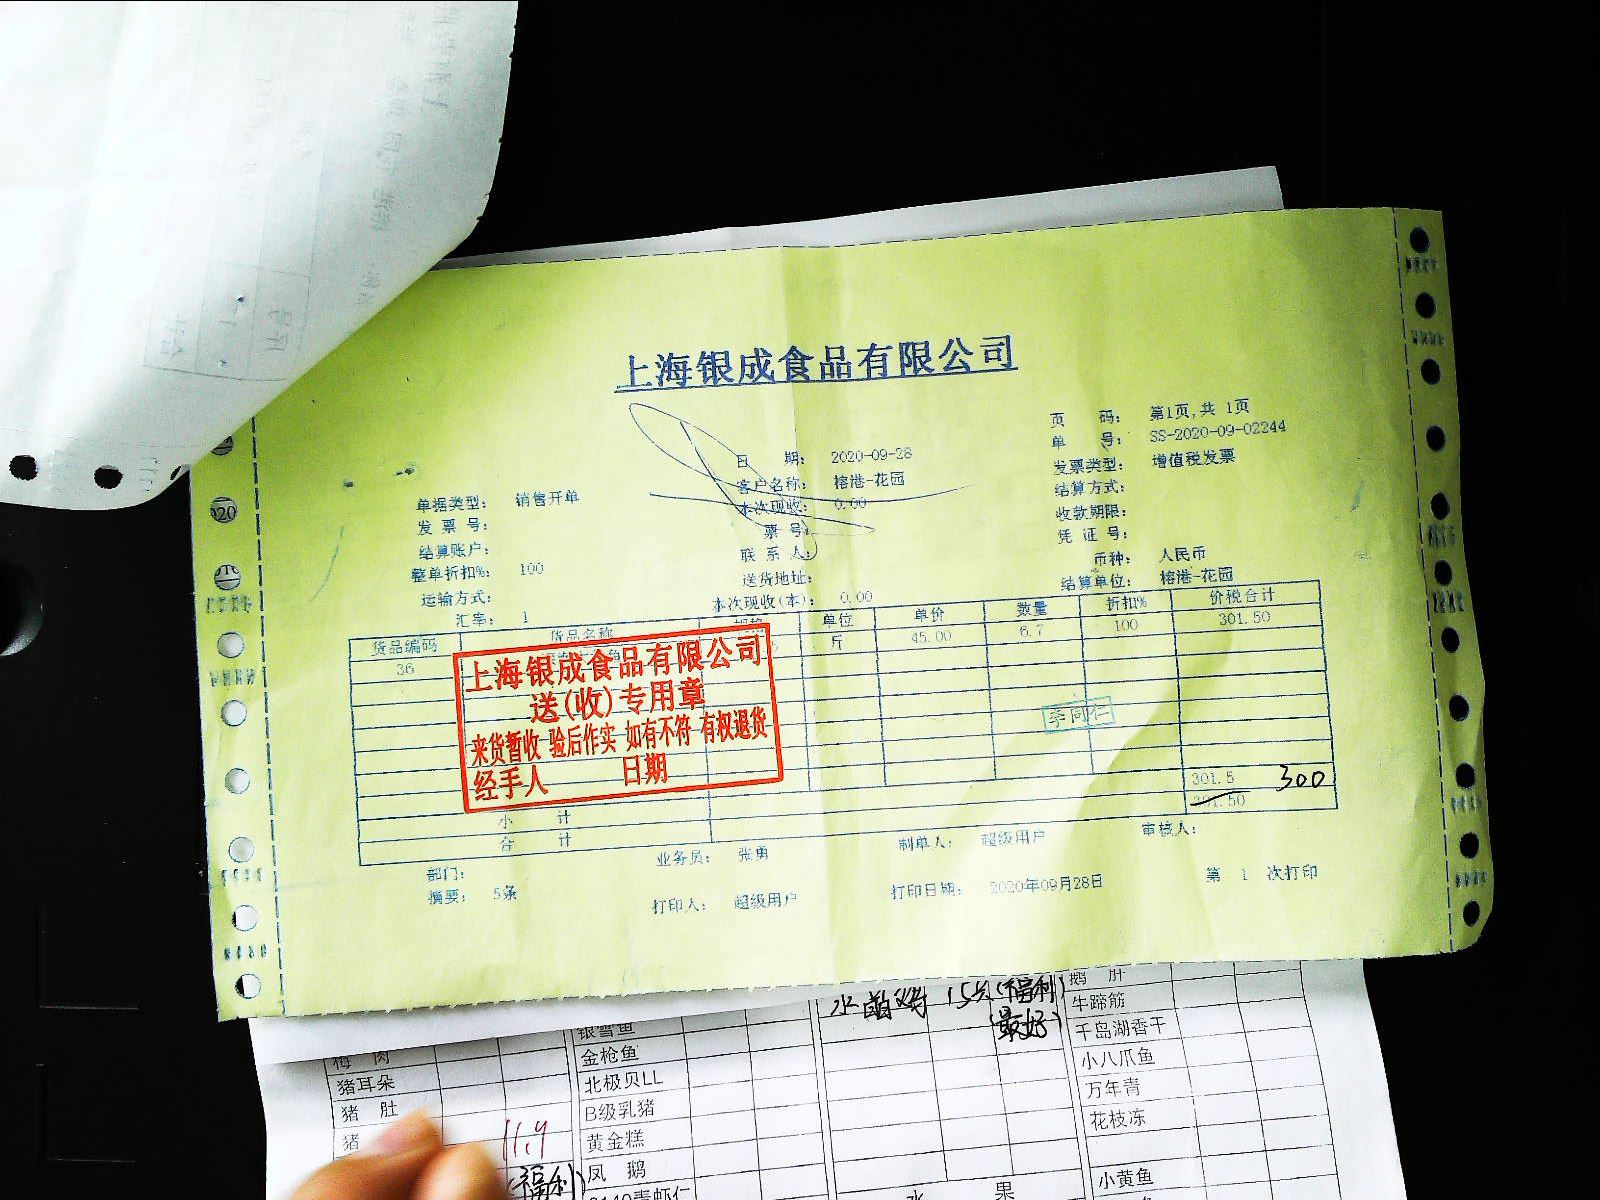 上海银成食品有限公司
页 码： 第1页,共 1页
单 号： SS-2020-09-02244
日 期： 2020-09-28
发票类型： 增值税发票
客户名称： 榕港-花园
结算方式：
单据类型： 销售开单
本次现收： 0.00
收款期限：
发 票 号：
票 号：
凭 证 号：
结算账户：
联 系 人：
币种： 人民币
整单折扣%： 100
送货地址：
结算单位： 榕港-花园
运输方式：
本次现收(本)： 0.00
汇率： 1
货品编码 货品名称 规格 单位 单价 数量 折扣% 价税合计
36 斤 45.00 6.7 100 301.50
上海银成食品有限公司
送(收)专用章
来货暂收 验后作实 如有不符 有权退货
经手人 日期
李同仁
小 计 301.5 300
合 计 301.50
部门： 业务员： 张勇 制单人： 超级用户 审核人：
摘要： 5条 打印人： 超级用户 打印日期： 2020年09月28日 第 1 次打印
梅 肉
猪耳朵
猪 肚
猪
11.9
(福利)
银雪鱼
金枪鱼
北极贝LL
B级乳猪
黄金糕
凤 鹅
15只(福利)
(最好)
水 果
鹅 肝
牛蹄筋
千岛湖香干
小八爪鱼
万年青
花枝冻
小黄鱼